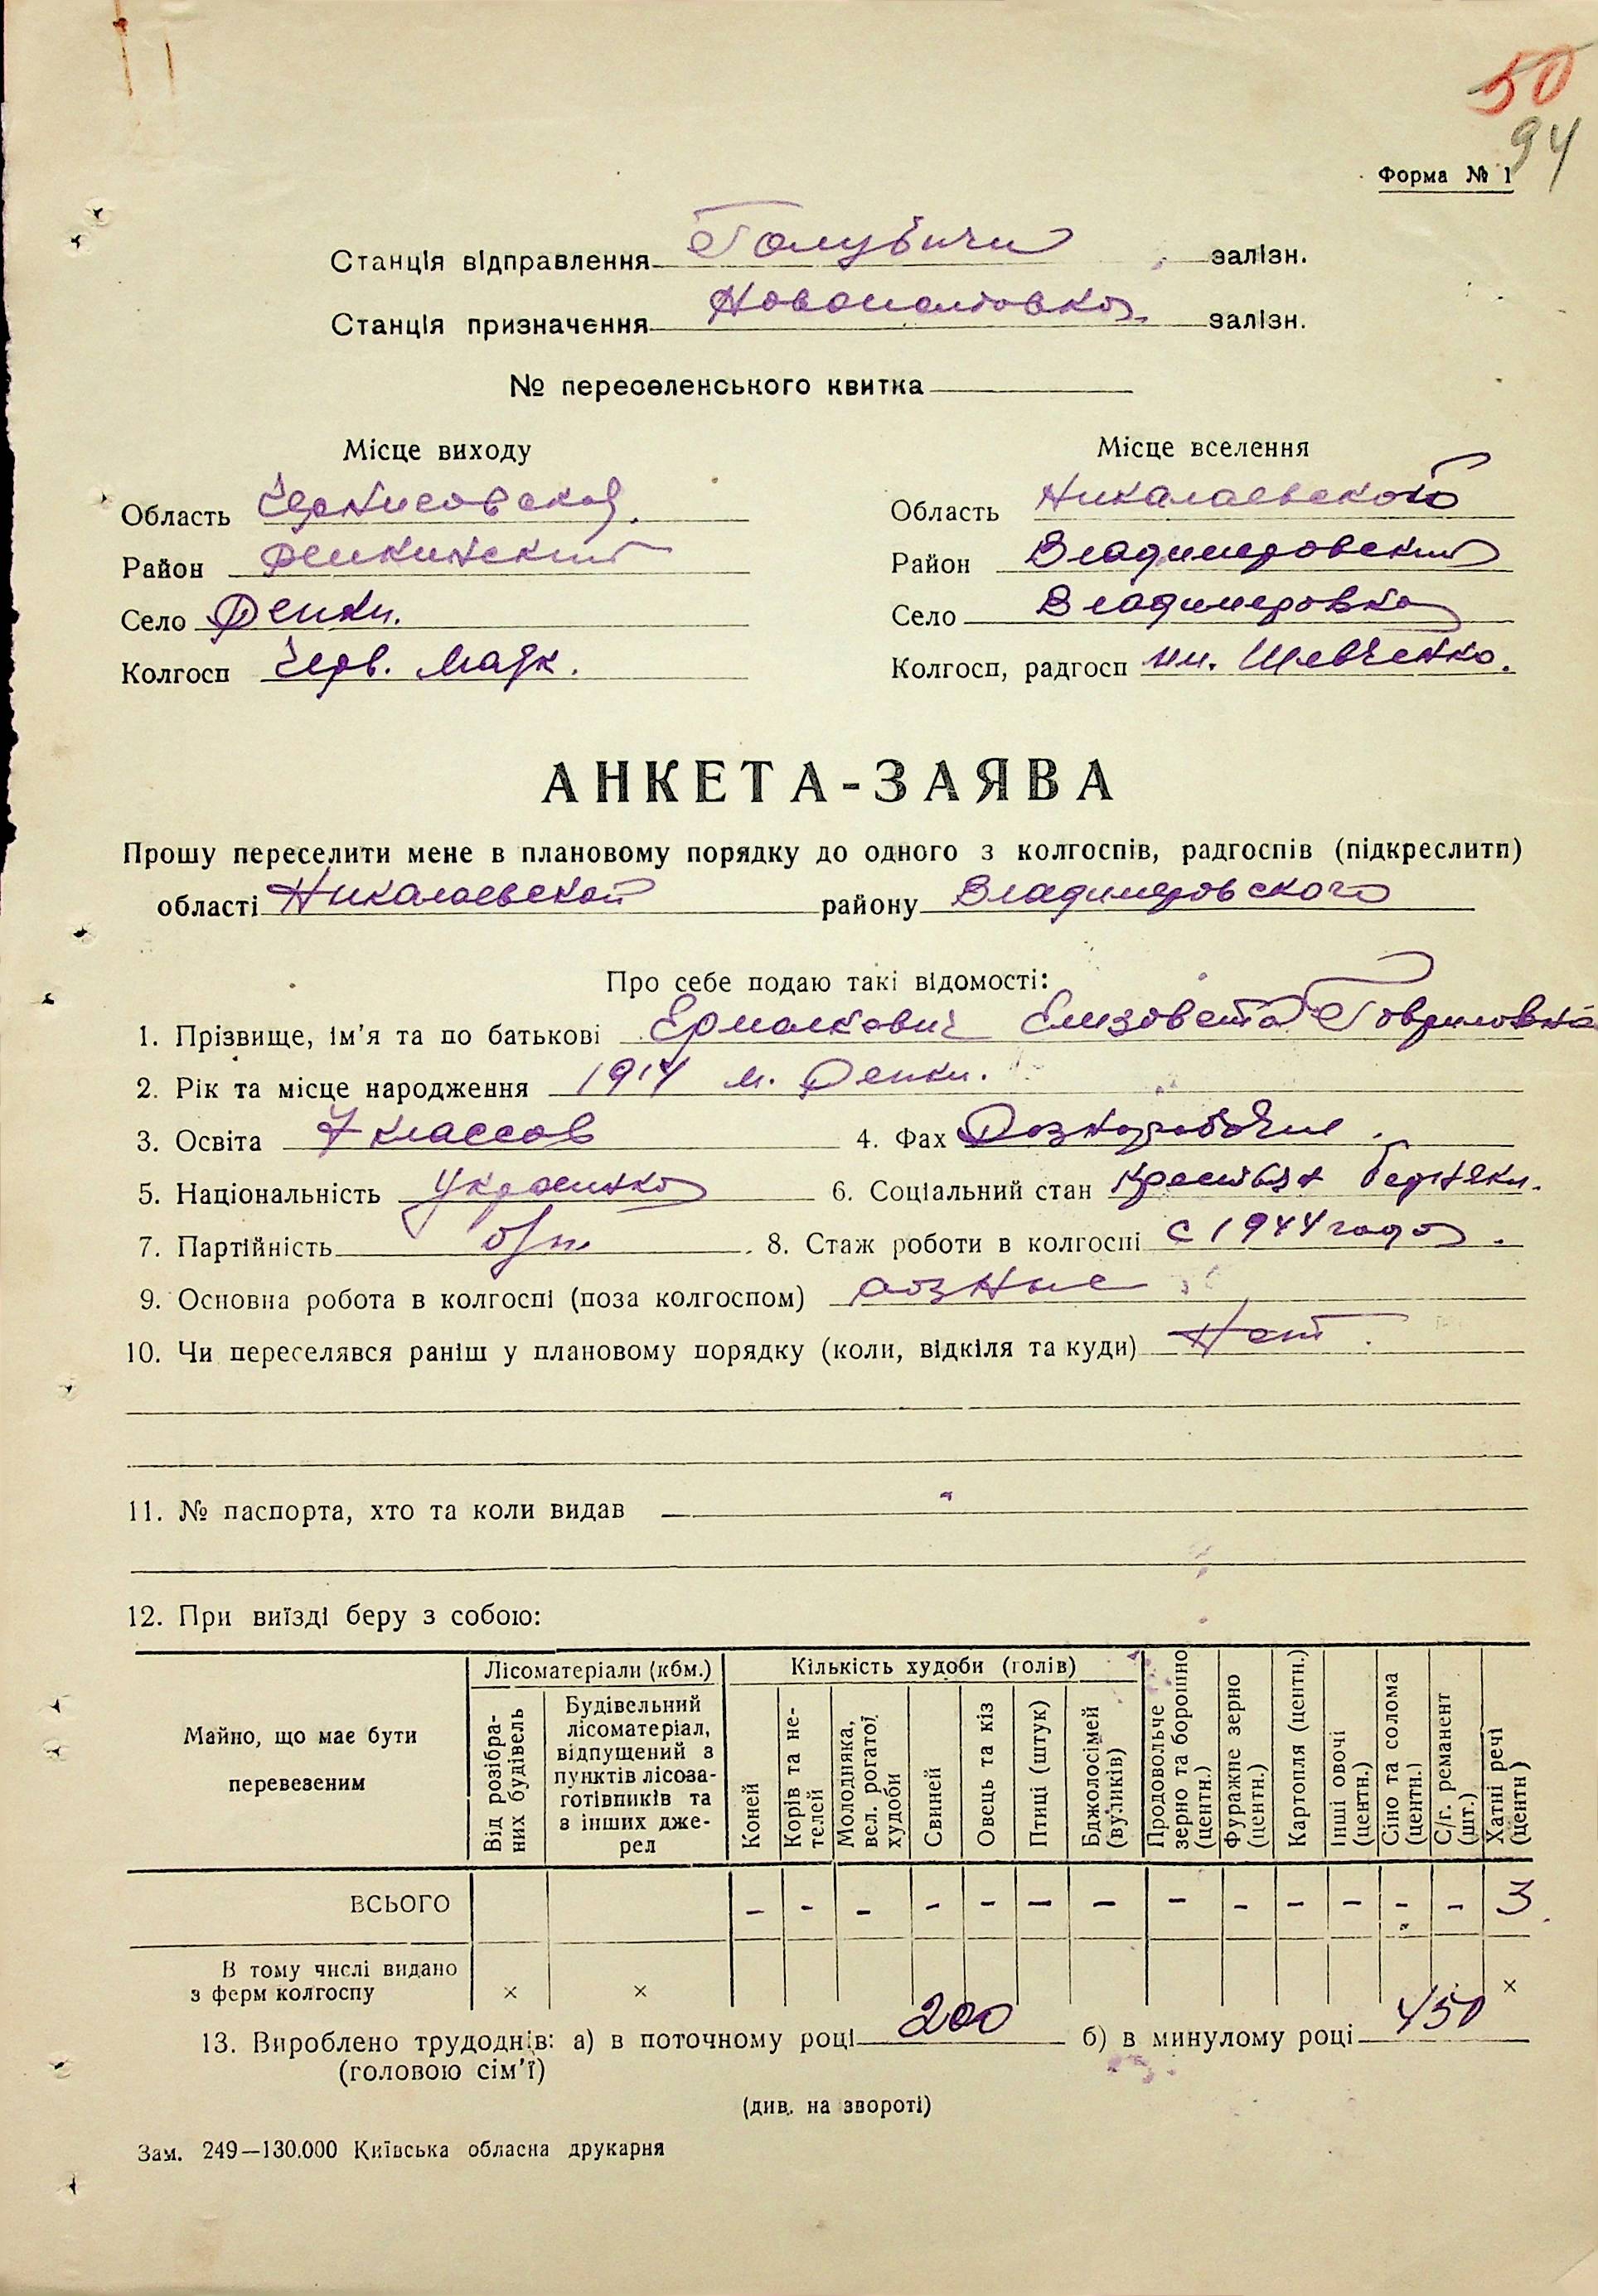 50
94
Форма № 1
Станція відправлення Голубичи залізн.
Станція призначення Новополтовка залізн.
№ переселенського квитка
Місце виходу
Місце вселення
Область Черниговская
Область Николаевского
Район Репкинский
Район Владимировский
Село Репки.
Село Владимировка
Колгосп Черв. Маяк.
Колгосп, радгосп им. Шевченко.
АНКЕТА-ЗАЯВА
Прошу переселити мене в плановому порядку до одного з колгоспів, радгоспів (підкреслити)
області Николаевской району Владимировского
Про себе подаю такі відомості:
1. Прізвище, ім'я та по батькові Ермолкевич Елизовета Говриловна
2. Рік та місце народження 1914 м. Репки.
3. Освіта 7 классов 4. Фах Разнорабочие.
5. Національність Украинка 6. Соціальний стан Крестьян бедняки.
7. Партійність б/п. 8. Стаж роботи в колгоспі с 1944 года.
9. Основна робота в колгоспі (поза колгоспом) розные
10. Чи переселявся раніш у плановому порядку (коли, відкіля та куди) Нет.
11. № паспорта, хто та коли видав
12. При виїзді беру з собою:
Майно, що має бути перевезеним
Лісоматеріали (кбм.)
Кількість худоби (голів)
Від розібраних будівель
Будівельний лісоматеріал, відпущений з пунктів лісозаготівпиків та з інших джерел
Коней
Корів та нетелей
Молодняка, вел. рогатої худоби
Свиней
Овець та кіз
Птиці (штук)
Бджолосімей (вуликів)
Продовольче зерно та борошно (центн.)
Фуражне зерно (центн.)
Картопля (центн.)
Інші овочі (центн.)
Сіно та солома (центн.)
С/г. реманент (шт.)
Хатні речі (центн)
ВСЬОГО - - - - - - - - - - - - - 3
В тому числі видано
з ферм колгоспу × × ×
13. Вироблено трудоднів: а) в поточному році 200 б) в минулому році 450
(головою сім'ї)
(див. на звороті)
Зам. 249—130.000 Київська обласна друкарня